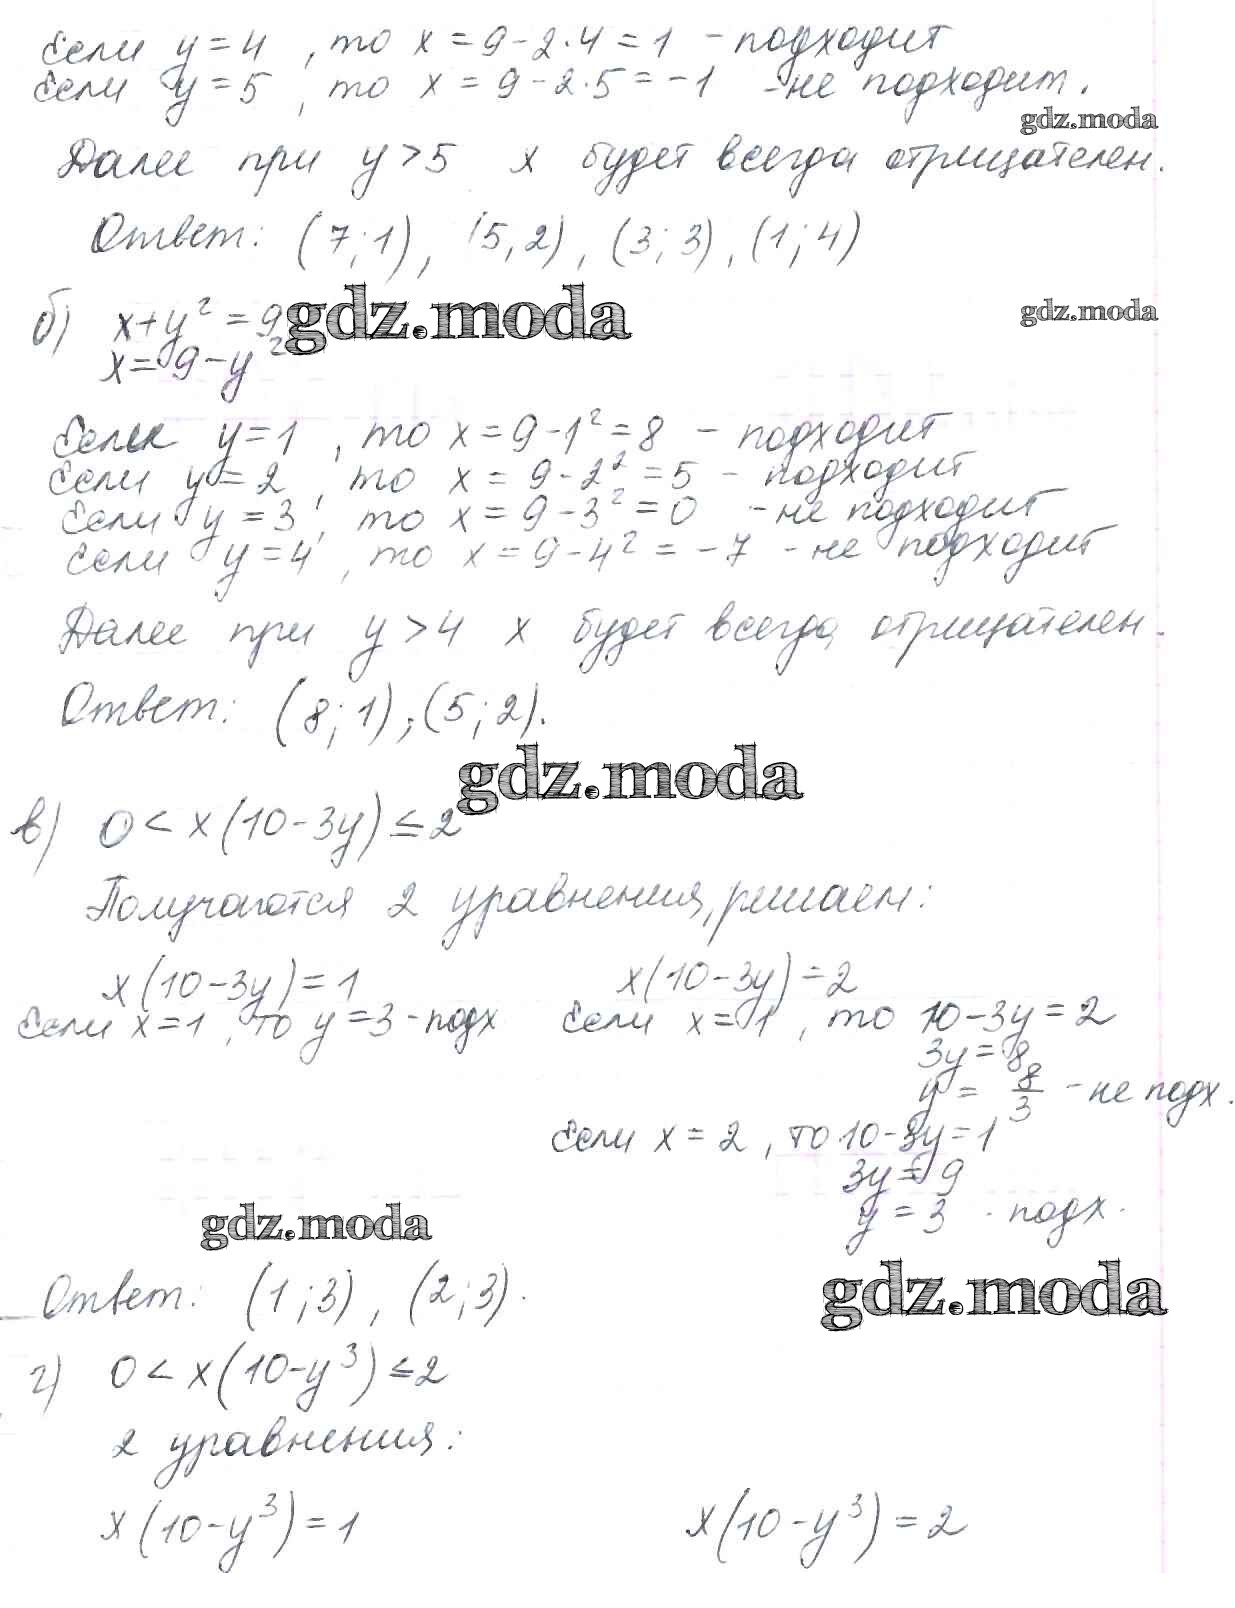 Если y = 4, то x = 9 - 2·4 = 1 - подходит
Если y = 5, то x = 9 - 2·5 = -1 - не подходит.
gdz.moda
Далее при y > 5 x будет всегда отрицателен.
Ответ: (7; 1), (5, 2), (3; 3), (1; 4)
б) x + y² = 9
gdz.moda
gdz.moda
x = 9 - y²
Если y = 1, то x = 9 - 1² = 8 - подходит
Если y = 2, то x = 9 - 2² = 5 - подходит
Если y = 3, то x = 9 - 3² = 0 - не подходит
Если y = 4, то x = 9 - 4² = -7 - не подходит
Далее при y > 4 x будет всегда отрицателен.
Ответ: (8; 1); (5; 2).
gdz.moda
в) 0 < x(10 - 3y) ≤ 2
Получаются 2 уравнения, решаем:
x(10 - 3y) = 1
x(10 - 3y) = 2
Если x = 1, то y = 3 - подх
Если x = 1, то 10 - 3y = 2
3y = 8
y = 8/3 - не подх.
Если x = 2, то 10 - 3y = 1
3y = 9
y = 3 - подх.
gdz.moda
gdz.moda
Ответ: (1; 3), (2; 3).
г) 0 < x(10 - y³) ≤ 2
2 уравнения:
x(10 - y³) = 1
x(10 - y³) = 2